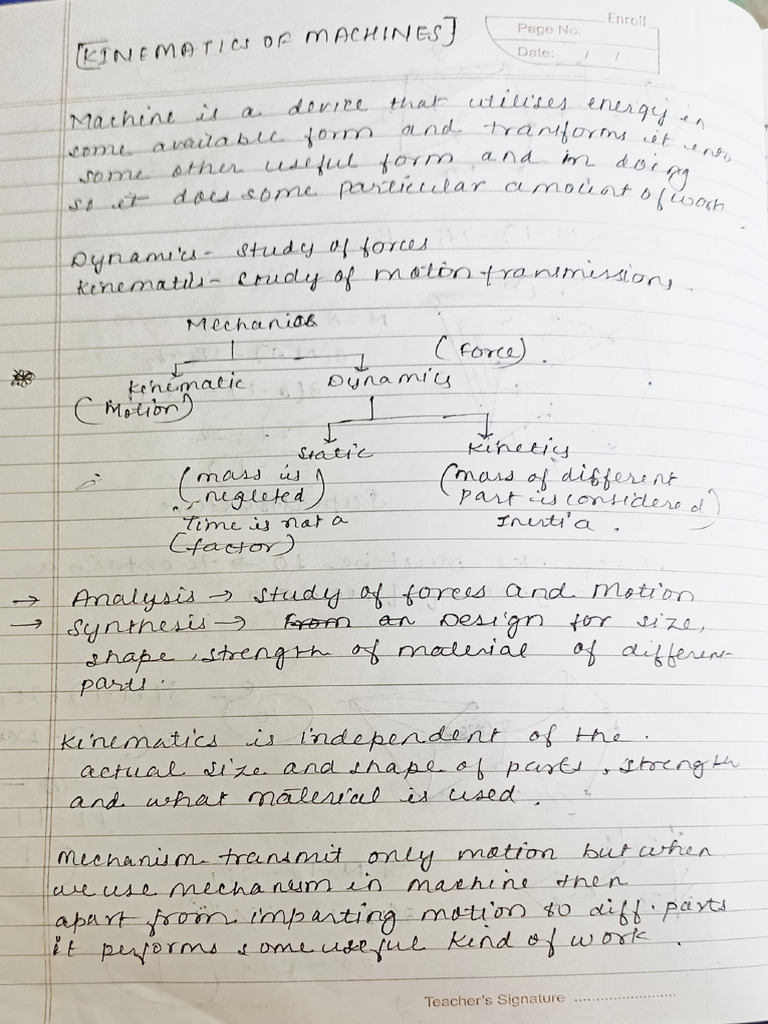 Enroll
Page No:
Date: / /
[KINEMATICS OF MACHINES]
Machine is a device that utilises energy in
some available form and transforms it into
some other useful form and in doing
so it does some particular amount of work.
Dynamics - study of forces
Kinematics - study of motion transmissions.
Mechanics
(Force).
Kinematic Dynamics
(Motion)
Static Kinetics
(mass is (mass of different
negleted) part is considered)
Time is not a Inertia.
(factor)
→ Analysis → study of forces and Motion
→ Synthesis → From an Design for size,
shape, strength of material of different
parts.
Kinematics is independent of the
actual size and shape of parts, strength
and what material is used.
Mechanism transmit only motion but when
we use mechanism in machine then
apart from imparting motion to diff. parts
it performs some useful kind of work.
Teacher's Signature ........................